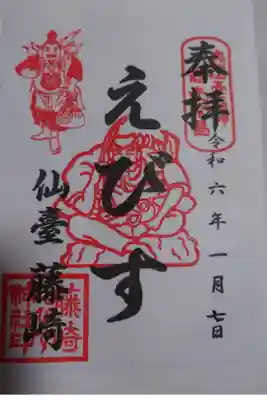 奉拝
令和六年一月七日
えびす
仙臺
藤崎
藤崎